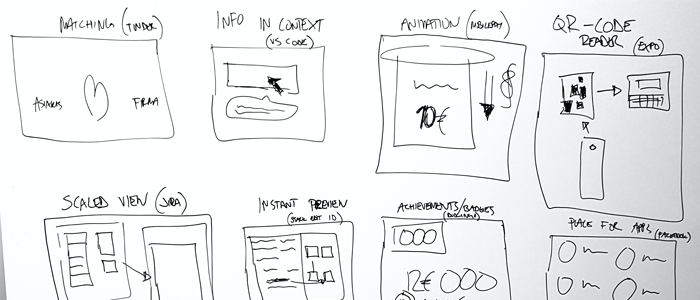 MATCHING (TINDER)
ASIAKAS
FIRMA
INFO IN CONTEXT
(VS CODE)
ANIMATION (MOBILEPAY)
10€
QR-CODE
READER (EXPO)
SCALED VIEW (JIRA)
INSTANT PREVIEW
ACHIEVEMENTS/BADGES
1000
PLACE FOR APPS (FACEBOOK)